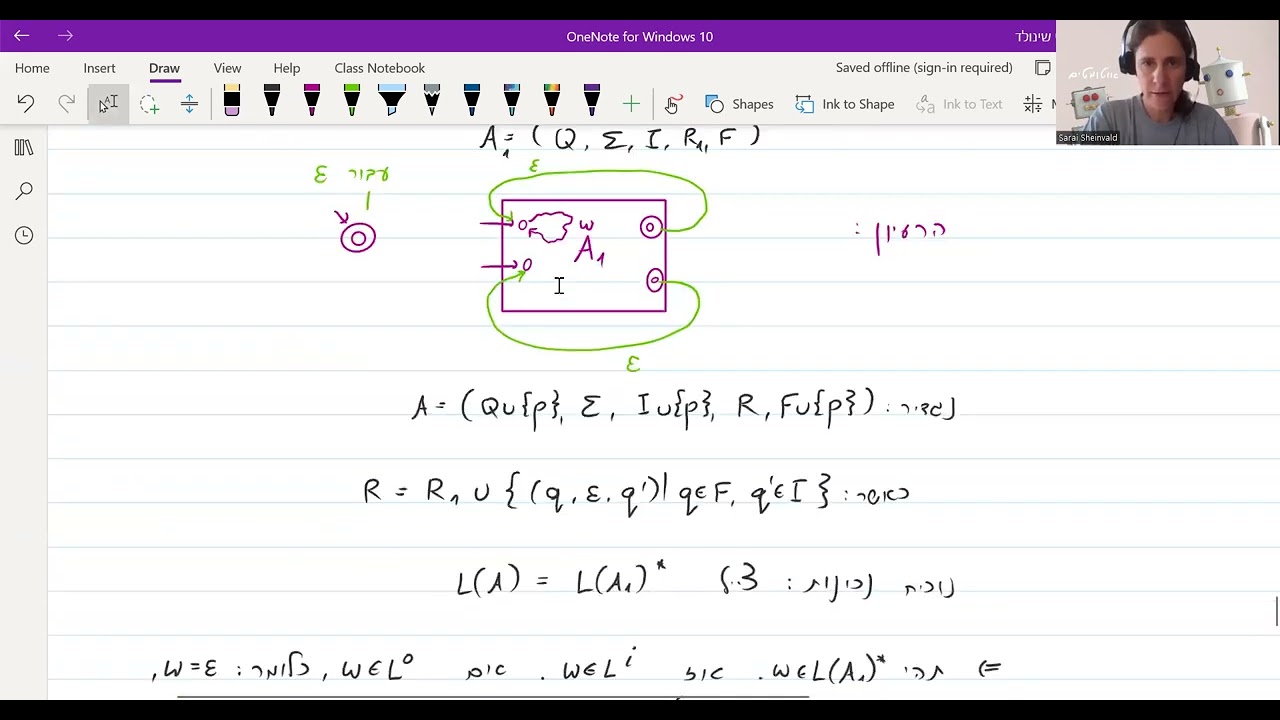 OneNote for Windows 10
י שינולד
Home Insert Draw View Help Class Notebook
Saved offline (sign-in required)
Shapes Ink to Shape Ink to Text M
אוטומטים
Sarai Sheinvald
A₁ = ( Q , Σ, I, R₁, F )
עבור ε
ε
הרעיון :
w
A₁
ε
נגדיר: A = (Q∪{p}, Σ, I∪{p}, R, F∪{p})
כאשר: R = R₁ ∪ {(q, ε, q')| q∈F, q'∈I}
נוכיח נכונות: צ.ל L(A) = L(A₁)*
⇐ תהי w∈L(A₁)*. אז w∈Lⁱ. אם w∈L⁰, כלומר: w=ε,